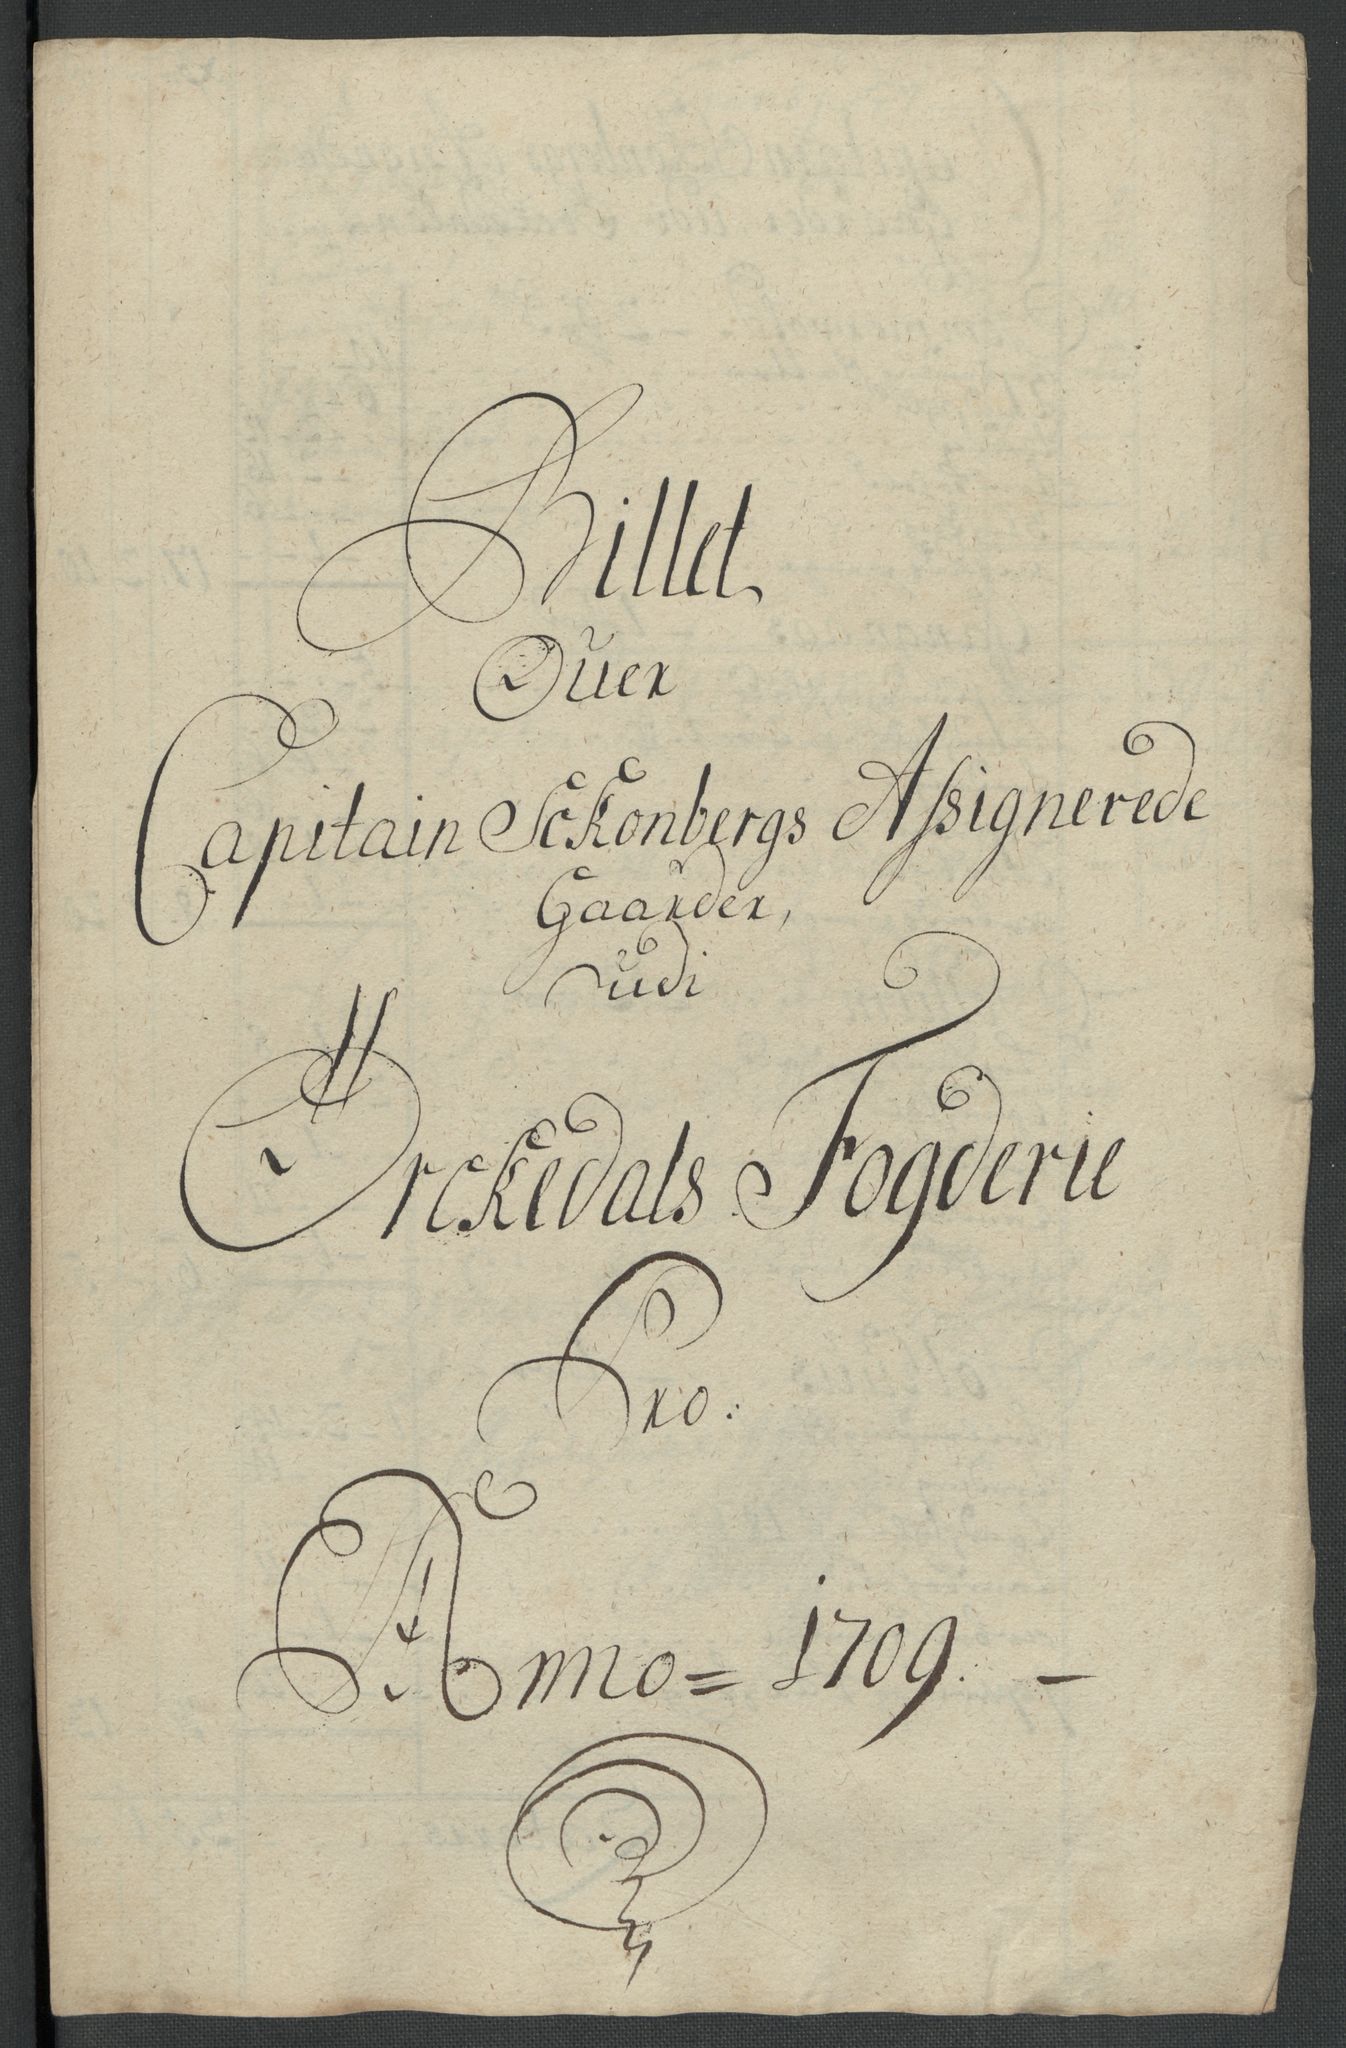 Billet
Ouer
Capitain Sckonbergs Assignerede
Gaarder,
udi
Orckedals Fogderie
Pro:
Anno = 1709. –